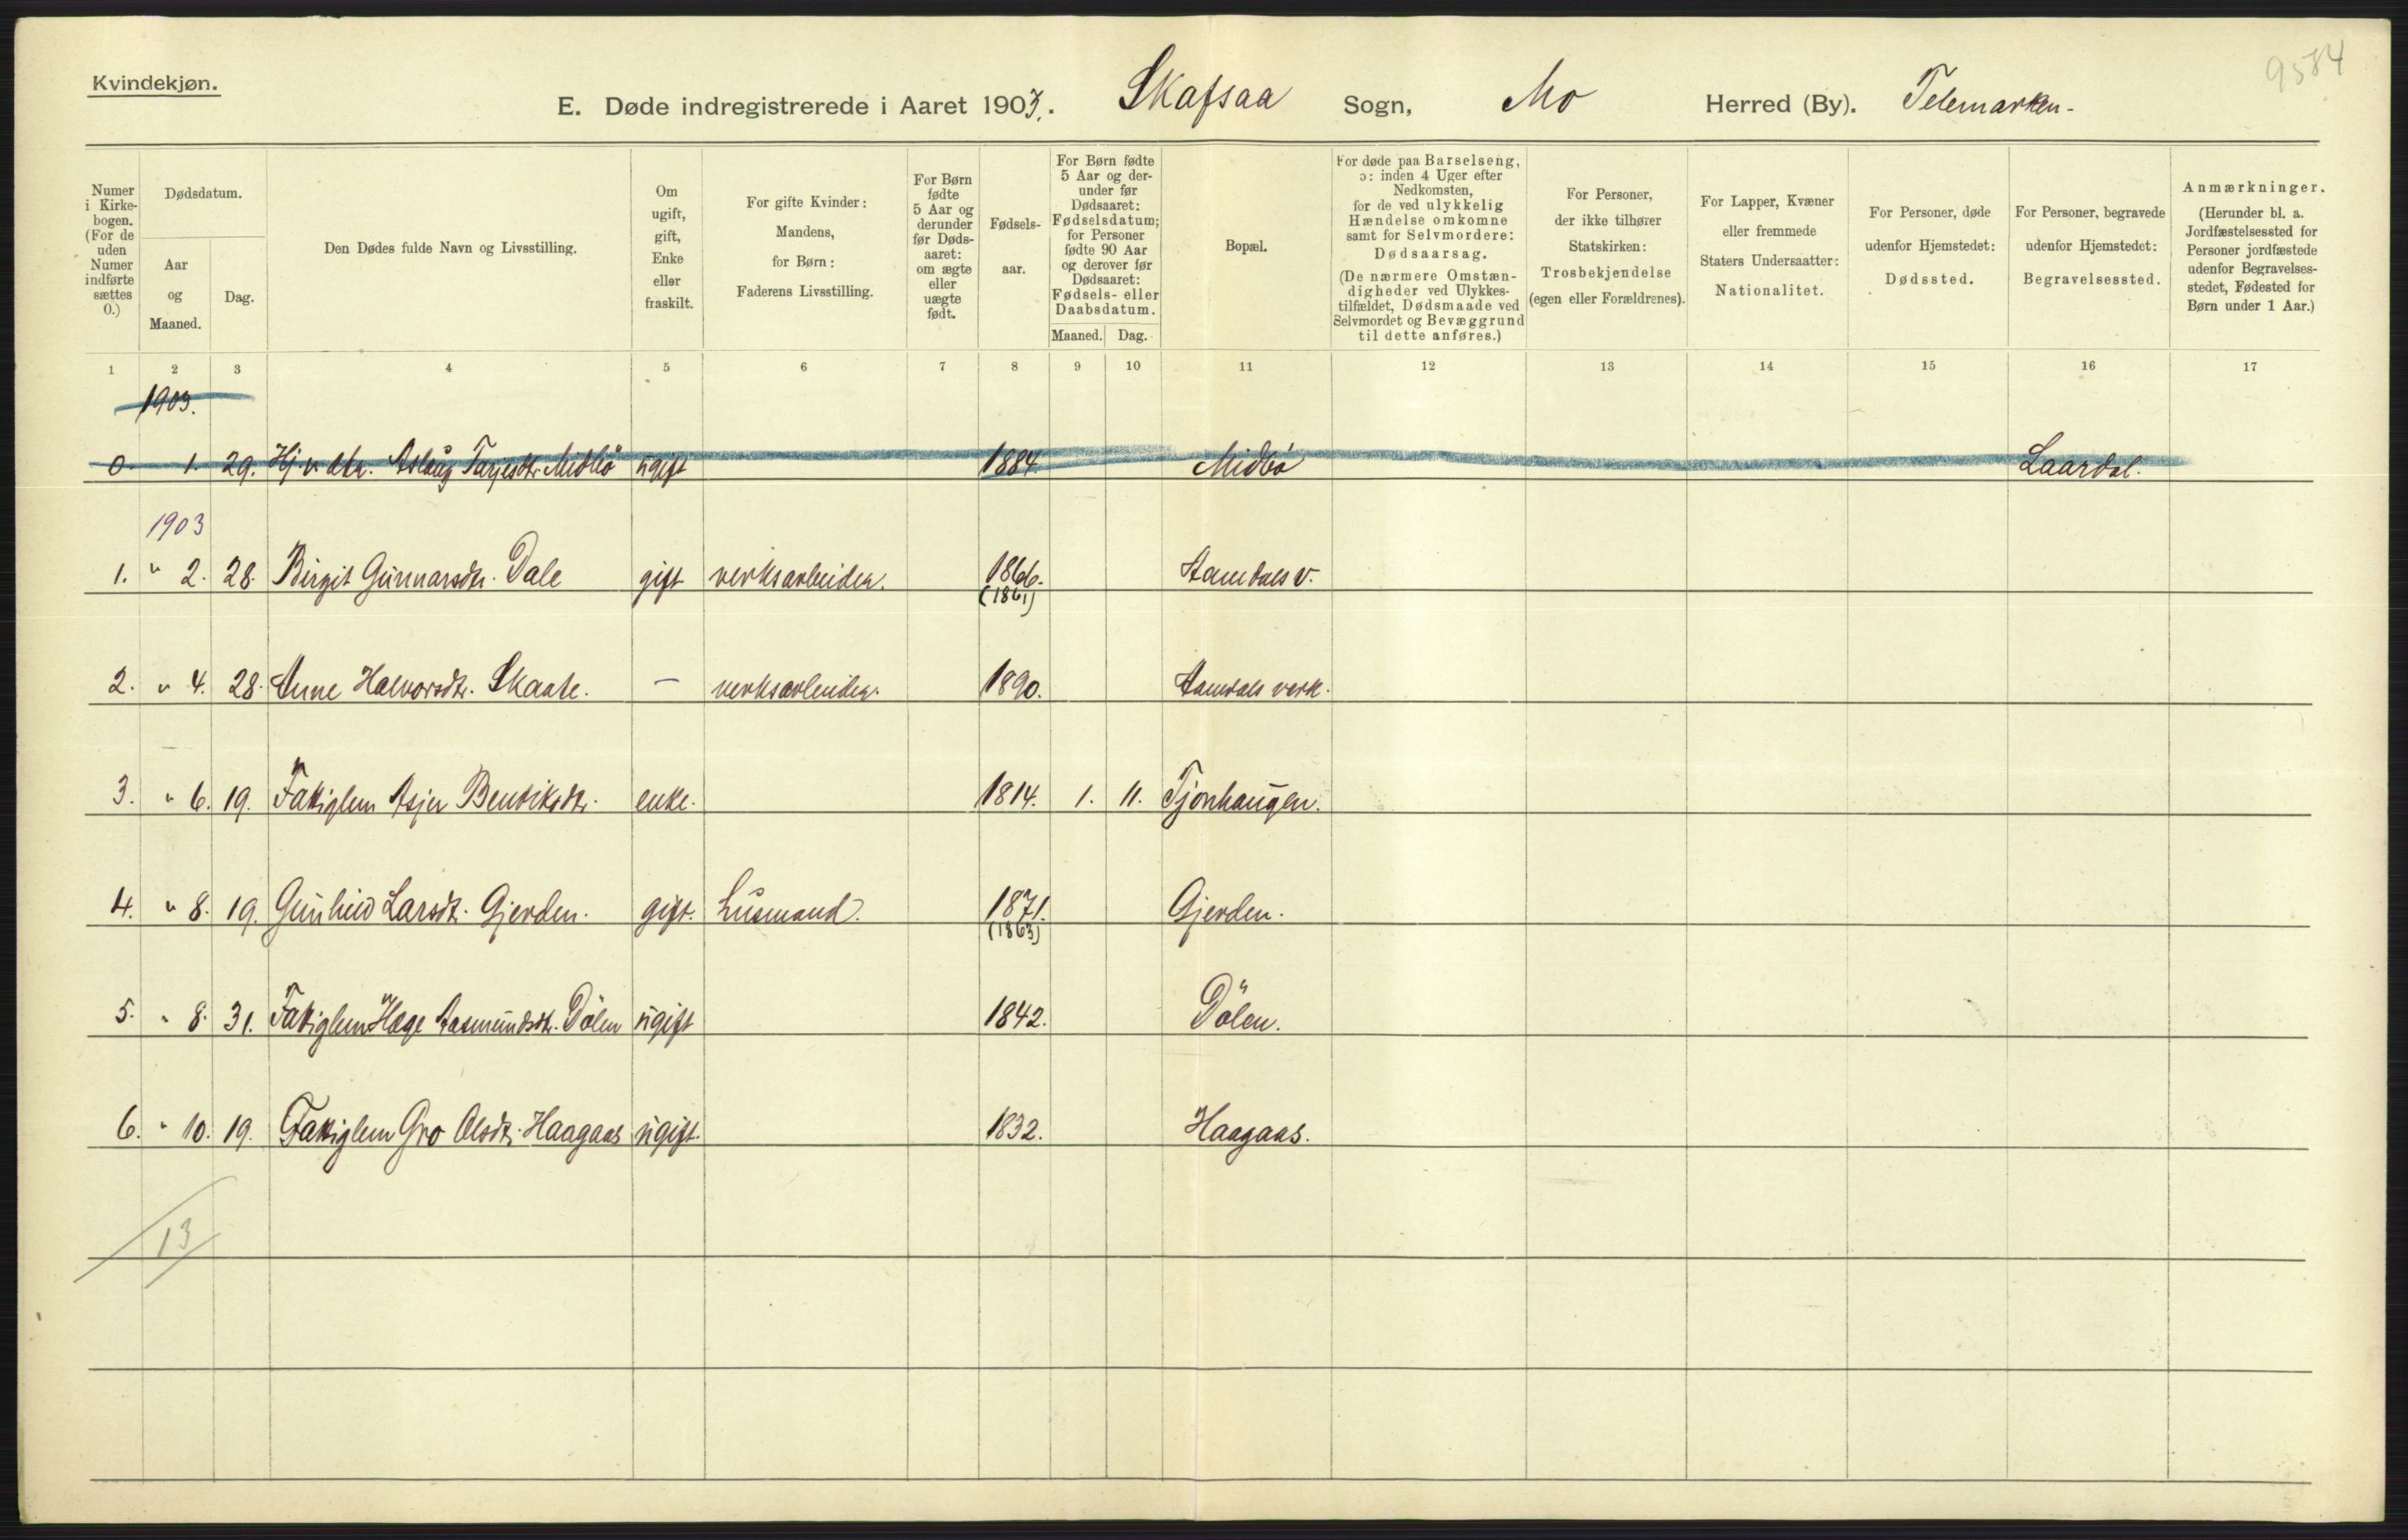 Kvindekjøn.
9584
E. Døde indregistrerede i Aaret 1903. Skafsaa Sogn, Mo Herred (By). Telemarken.
Numer i Kirkebogen. (For de uden Numer indførte sættes 0.)
Dødsdatum.
Aar og Maaned.
Dag.
Den Dødes fulde Navn og Livsstilling.
Om ugift, gift, Enke eller fraskilt.
For gifte Kvinder: Mandens, for Børn: Faderens Livsstilling.
For Børn fødte 5 Aar og derunder før Dødsaaret: om ægte eller uægte født.
Fødselsaar.
For Børn fødte 5 Aar og derunder før Dødsaaret: Fødselsdatum; for Personer fødte 90 Aar og derover før Dødsaaret: Fødsels- eller Daabsdatum.
Maaned. Dag.
Bopæl.
For døde paa Barselseng, ɔ: inden 4 Uger efter Nedkomsten, for de ved ulykkelig Hændelse omkomne samt for Selvmordere: Dødsaarsag. (De nærmere Omstændigheder ved Ulykkestilfældet, Dødsmaade ved Selvmordet og Bevæggrund til dette anføres.)
For Personer, der ikke tilhører Statskirken: Trosbekjendelse (egen eller Forældrenes).
For Lapper, Kvæner eller fremmede Staters Undersaatter: Nationalitet.
For Personer, døde udenfor Hjemstedet: Dødssted.
For Personer, begravede udenfor Hjemstedet: Begravelsessted.
Anmærkninger. (Herunder bl. a. Jordfæstelsessted for Personer jordfæstede udenfor Begravelsesstedet, Fødested for Børn under 1 Aar.)
1 2 3 4 5 6 7 8 9 10 11 12 13 14 15 16 17
1903.
0. 1. 29. Hj v. dtr. Aslaug Tarjesdtr. Midbö ugift 1884. Midbö Laardal.
1903
1. " 2. 28. Birgit Gunnarsdtr. Dale gift verksarbeider. 1866. Aamdals v.
(1861)
2. " 4. 28. Anne Halvorsdtr. Skaate. — verksarbeider. 1890. Aamdals verk.
3. " 6. 19. Fattiglem Asjer Bendiksdtr. enke. 1814. 1. 11. Tjonhaugen.
4. " 8. 19. Gunhild Larsdt. Gjerden. gift. husmand. 1871. Gjerden.
(1863)
5. " 8. 31. Fattiglem Hæge Aasmundsdtr. Dölen ugift 1842. Dölen.
6. " 10. 19. Fattiglem Gro Olsdtr. Haagaas ugift. 1832. Haagaas.
13